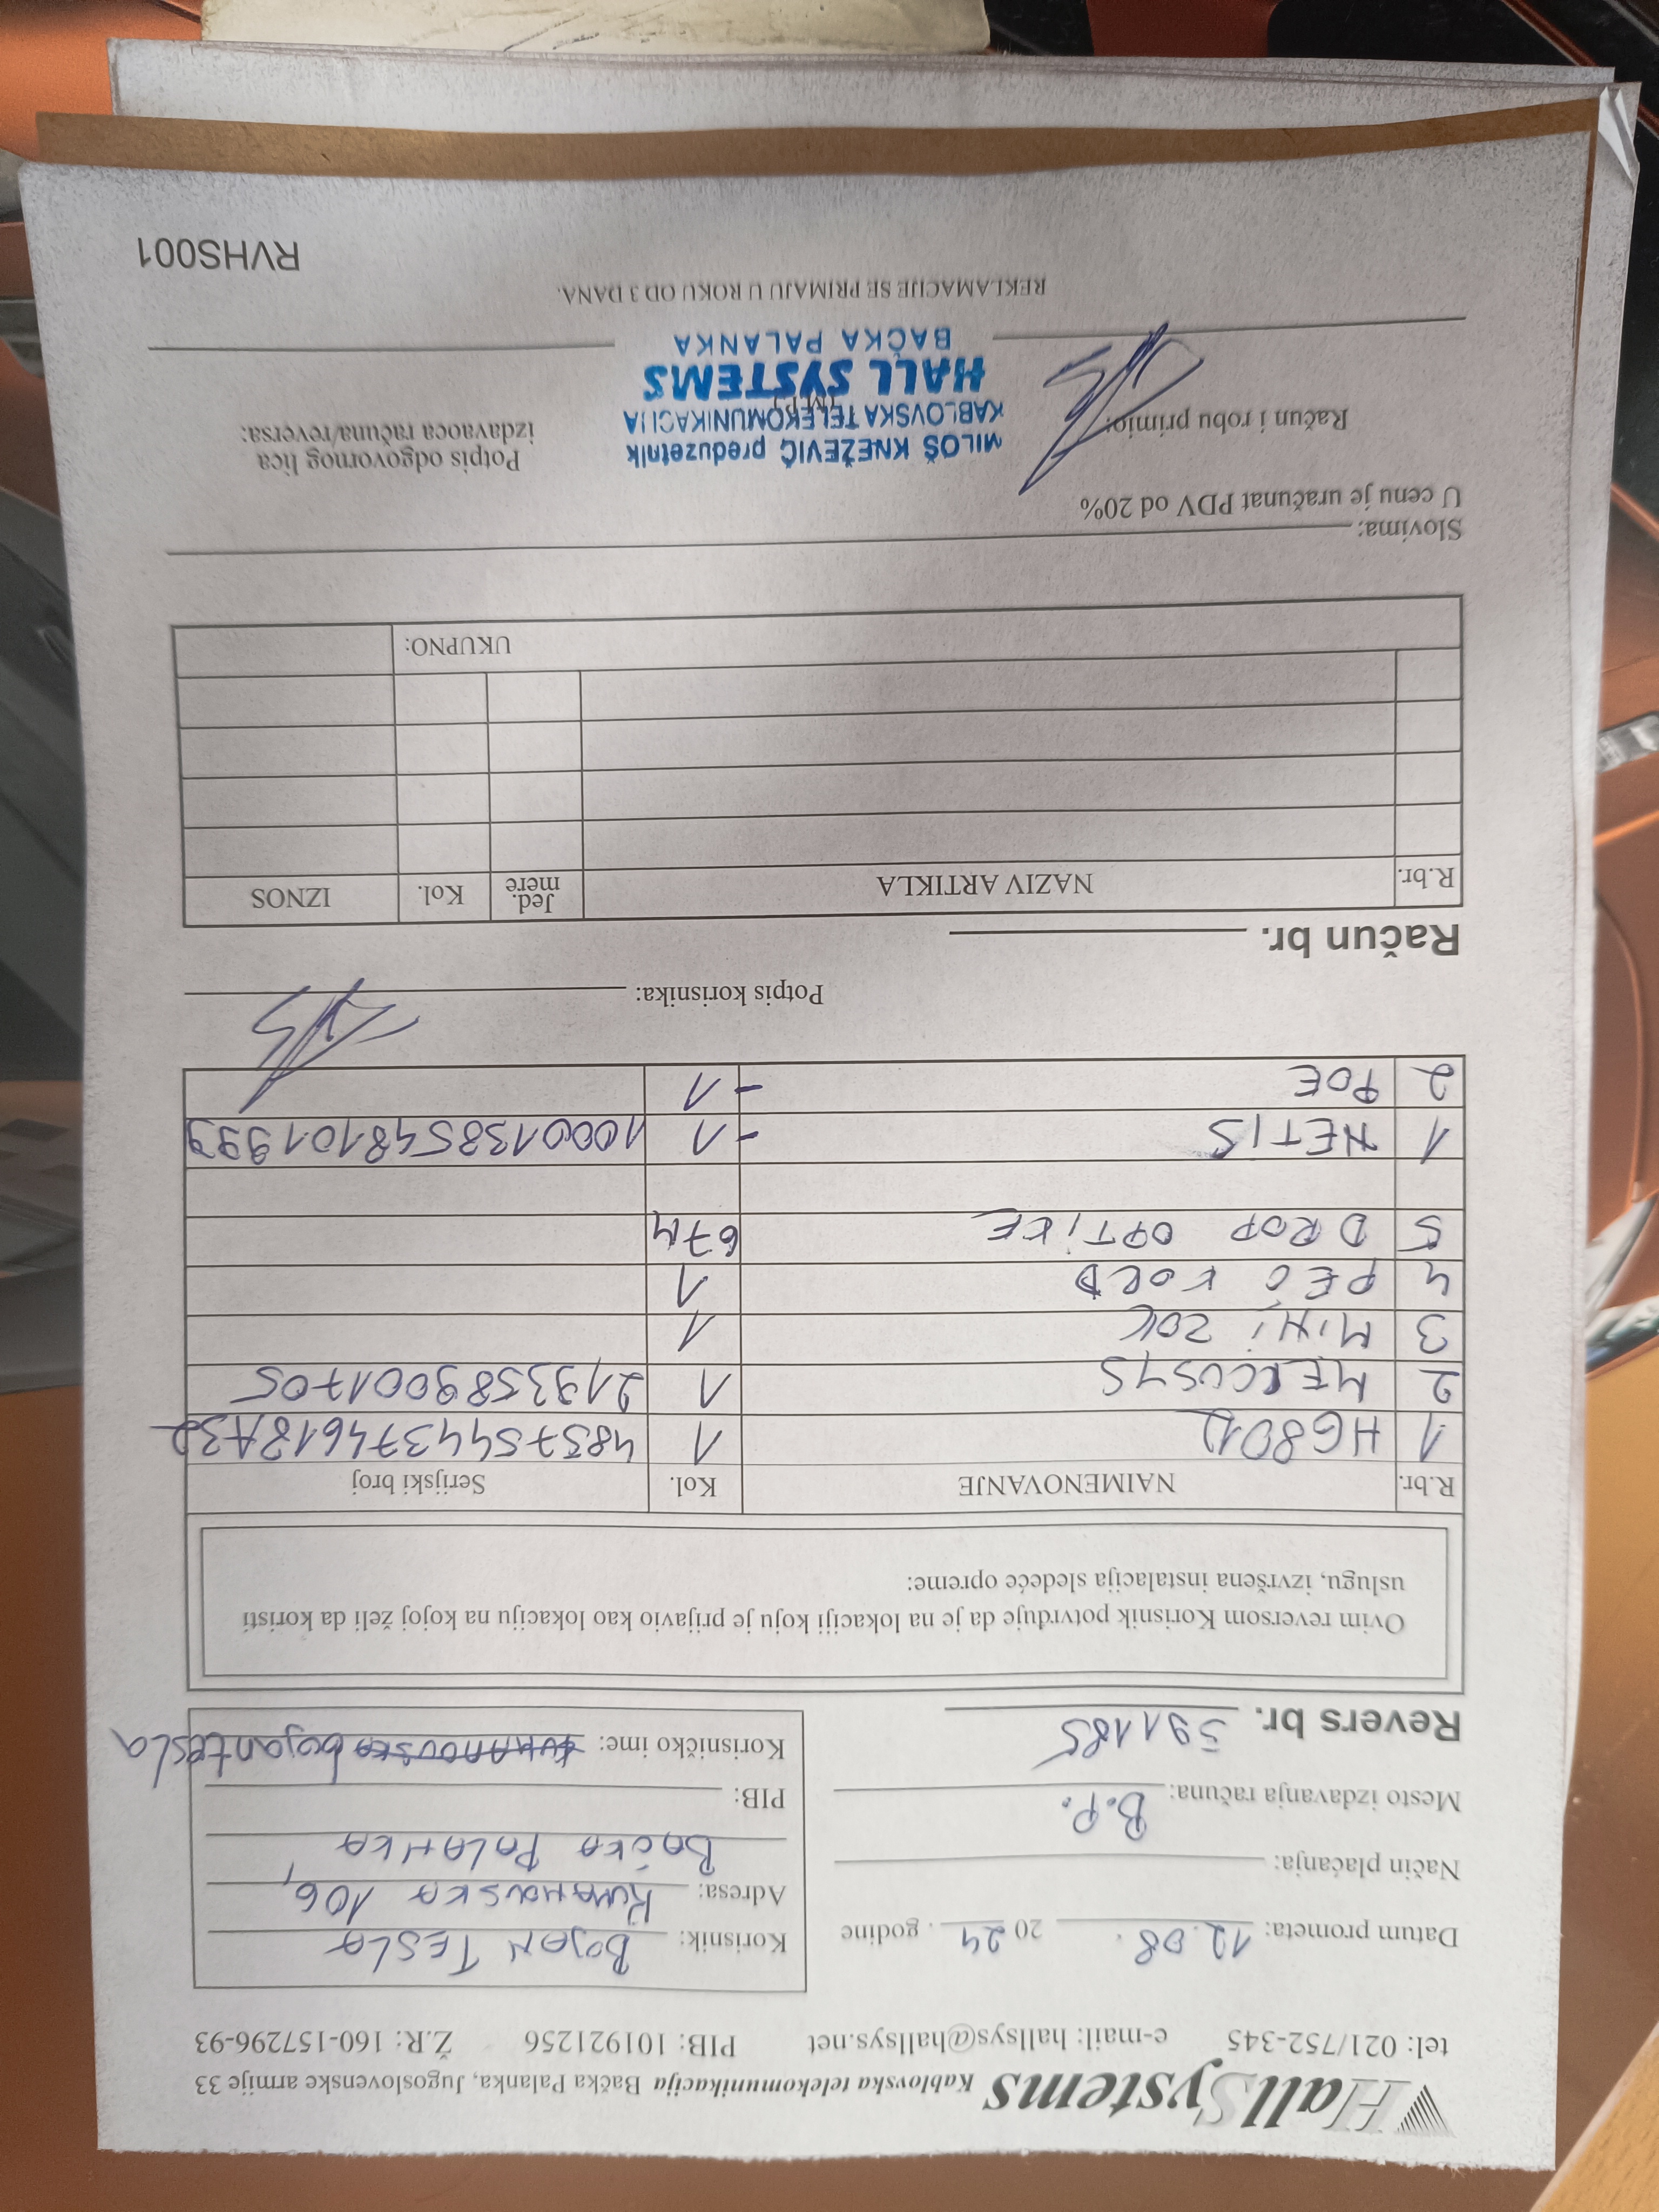 HallSystems Kablovska telekomunikacija Bačka Palanka, Jugoslovenske armije 33
tel: 021/752-345 e-mail: hallsys@hallsys.net PIB: 101921256 Ž.R: 160-157296-93
Datum prometa: 12.08. 20 24. godine
Način plaćanja:
Mesto izdavanja računa: B.P.
Revers br. 591185
Korisnik: BOJAN TESLA
Adresa: KUMANOVSKA 106,
BAČKA PALANKA
PIB:
Korisničko ime: KUMANOVSKA bojantesla
Ovim reversom Korisnik potvrđuje da je na lokaciji koju je prijavio kao lokaciju na kojoj želi da koristi
uslugu, izvršena instalacija sledeće opreme:
R.br. NAIMENOVANJE Kol. Serijski broj
1 HG8012 1 4857544374618A32
2 MERCUSYS 1 2193589001705
3 MINI ZOK 1
4 PEČ KORD 1
5 DROP OPTIKE 67M
1 NETIS -1 1000138548101999
2 POE -1
Potpis korisnika:
Račun br.
R.br. NAZIV ARTIKLA Jed. mere Kol. IZNOS
UKUPNO:
Slovima:
U cenu je uračunat PDV od 20%
Račun i robu primio:
MILOŠ KNEŽEVIĆ preduzetnik
KABLOVSKA TELEKOMUNIKACIJA
HALL SYSTEMS
BAČKA PALANKA
Potpis odgovornog lica
izdavaoca računa/reversa:
REKLAMACIJE SE PRIMAJU U ROKU OD 3 DANA.
RVHS001